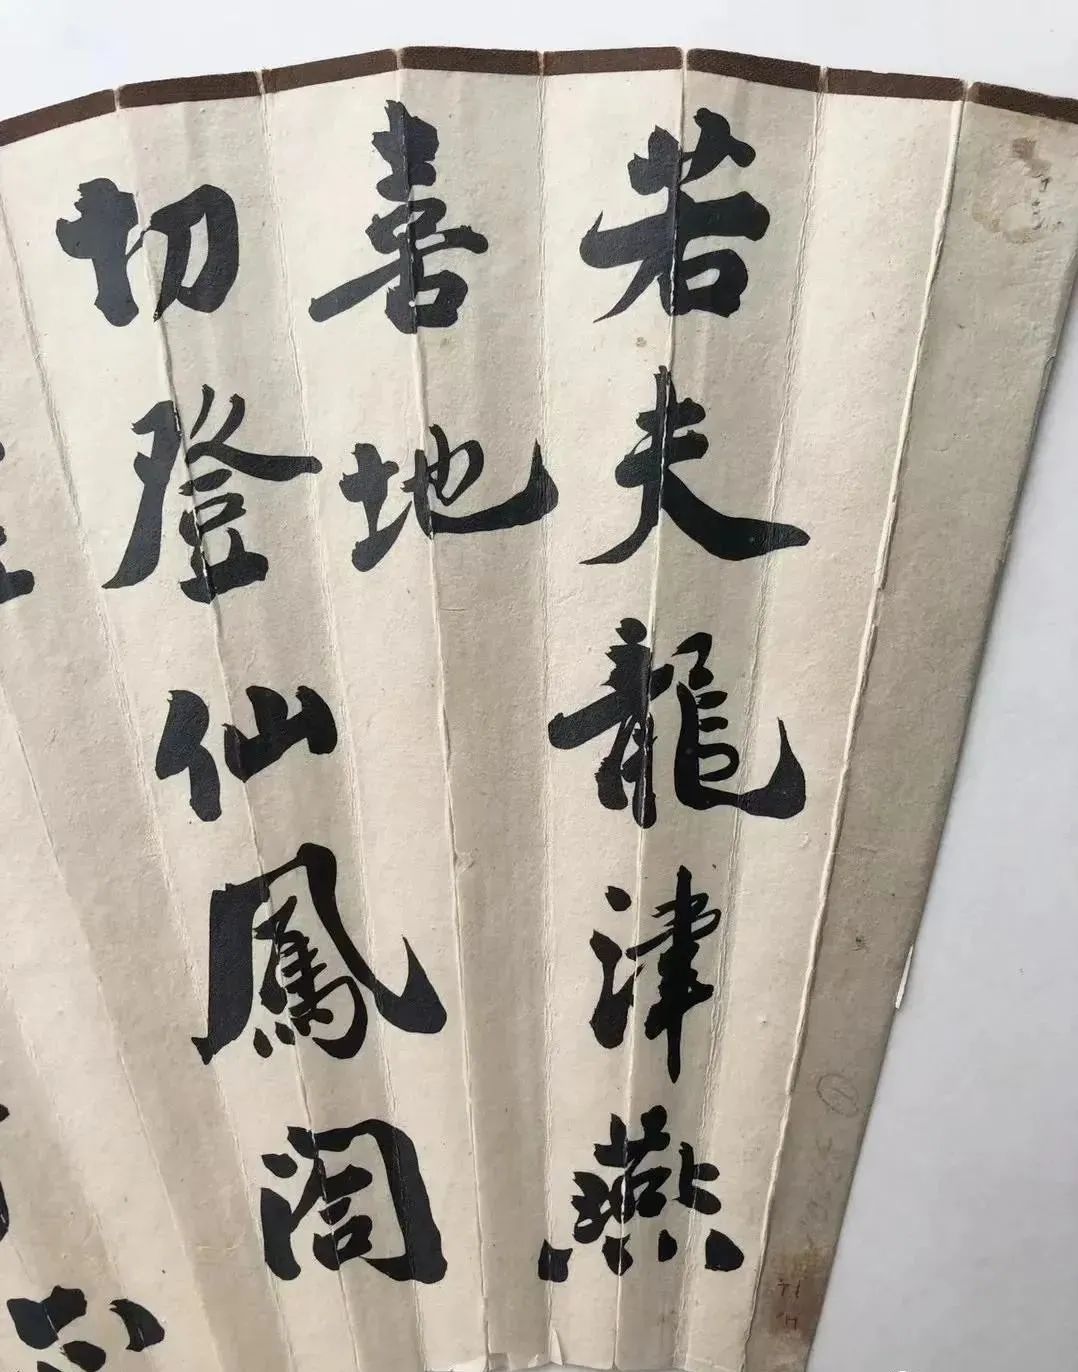 若夫龍津燕
喜地
切登仙鳳閣